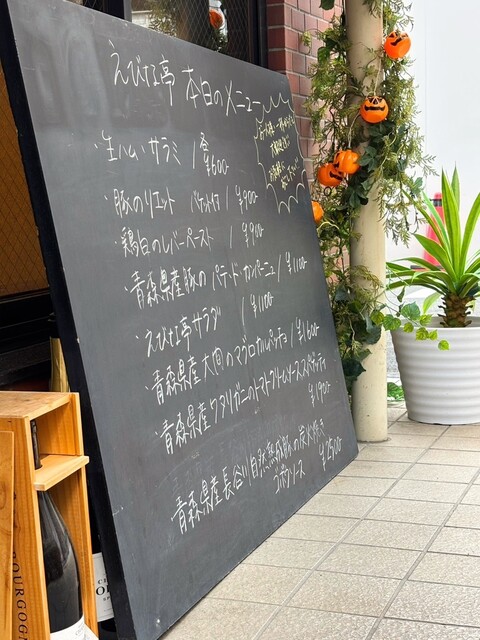 えびす亭 本日のメニュー
・生ハム、サラミ / 各 ¥600
・豚のリエット バケット付 / ¥900
鶏白のレバーペースト / ¥900
・青森県産豚の パテ・ド・カンパーニュ / ¥1100
・えびす亭サラダ / ¥1100
・青森県産 大間のマグロカルパッチョ / ¥1600
・青森県産ワタリガニのトマトクリームソーススパゲッティ
¥1900
青森県産長谷川自然熟成豚の炭火焼き
ゴボウソース ¥2500
BOURGOGN